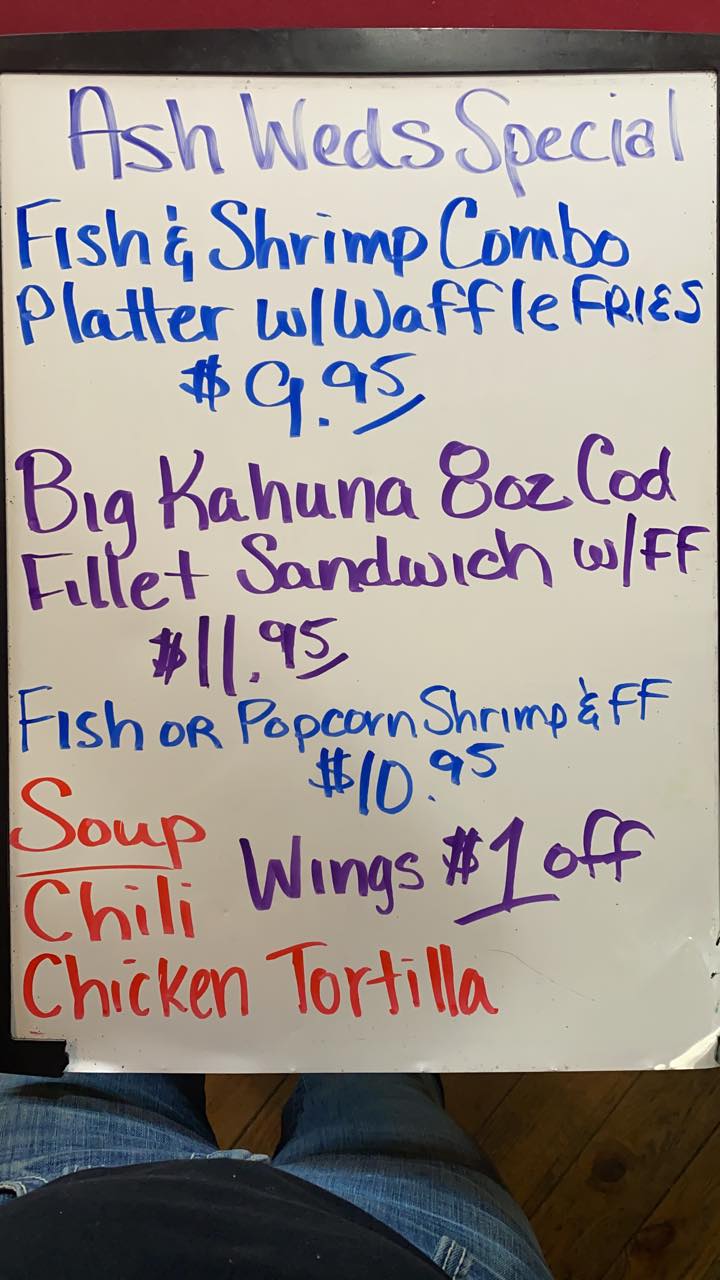 Ash Weds Special
Fish & Shrimp Combo
Platter w/Waffle FRIES
$9.95
Big Kahuna 8oz Cod
Fillet Sandwich w/FF
$11.95
Fish OR Popcorn Shrimp & FF
$10.95
Soup
Wings $1 off
Chili
Chicken Tortilla